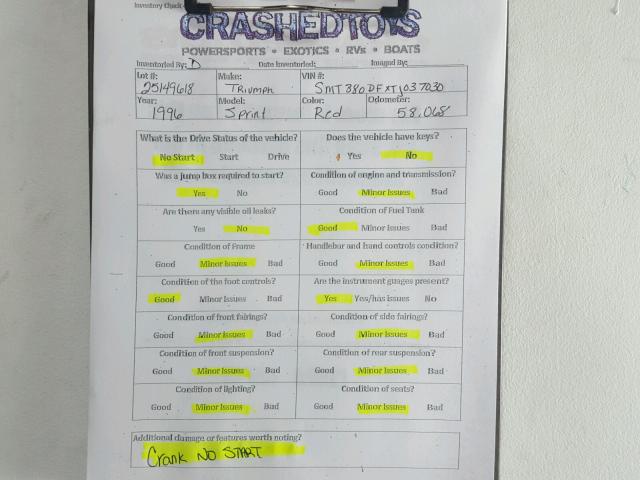 Inventory Check
CRASHEDTOYS
POWERSPORTS • EXOTICS • RVs • BOATS
Inventoried By: D Date Inventoried: Imaged By:
Lot #: Make: VIN #:
25149618 Triumph SMT380DFXTJ037030
Year: Model: Color: Odometer:
1996 Sprint Red 58,068
What is the Drive Status of the vehicle? Does the vehicle have keys?
No Start Start Drive Yes No
Was a jump box required to start? Condition of engine and transmission?
Yes No Good Minor Issues Bad
Are there any visible oil leaks? Condition of Fuel Tank
Yes No Good Minor Issues Bad
Condition of Frame Handlebar and hand controls condition?
Good Minor Issues Bad Good Minor Issues Bad
Condition of the foot controls? Are the instrument guages present?
Good Minor Issues Bad Yes Yes/has issues No
Condition of front fairings? Condition of side fairings?
Good Minor Issues Bad Good Minor Issues Bad
Condition of front suspension? Condition of rear suspension?
Good Minor Issues Bad Good Minor Issues Bad
Condition of lighting? Condition of seats?
Good Minor Issues Bad Good Minor Issues Bad
Additional damage or features worth noting?
Crank NO START